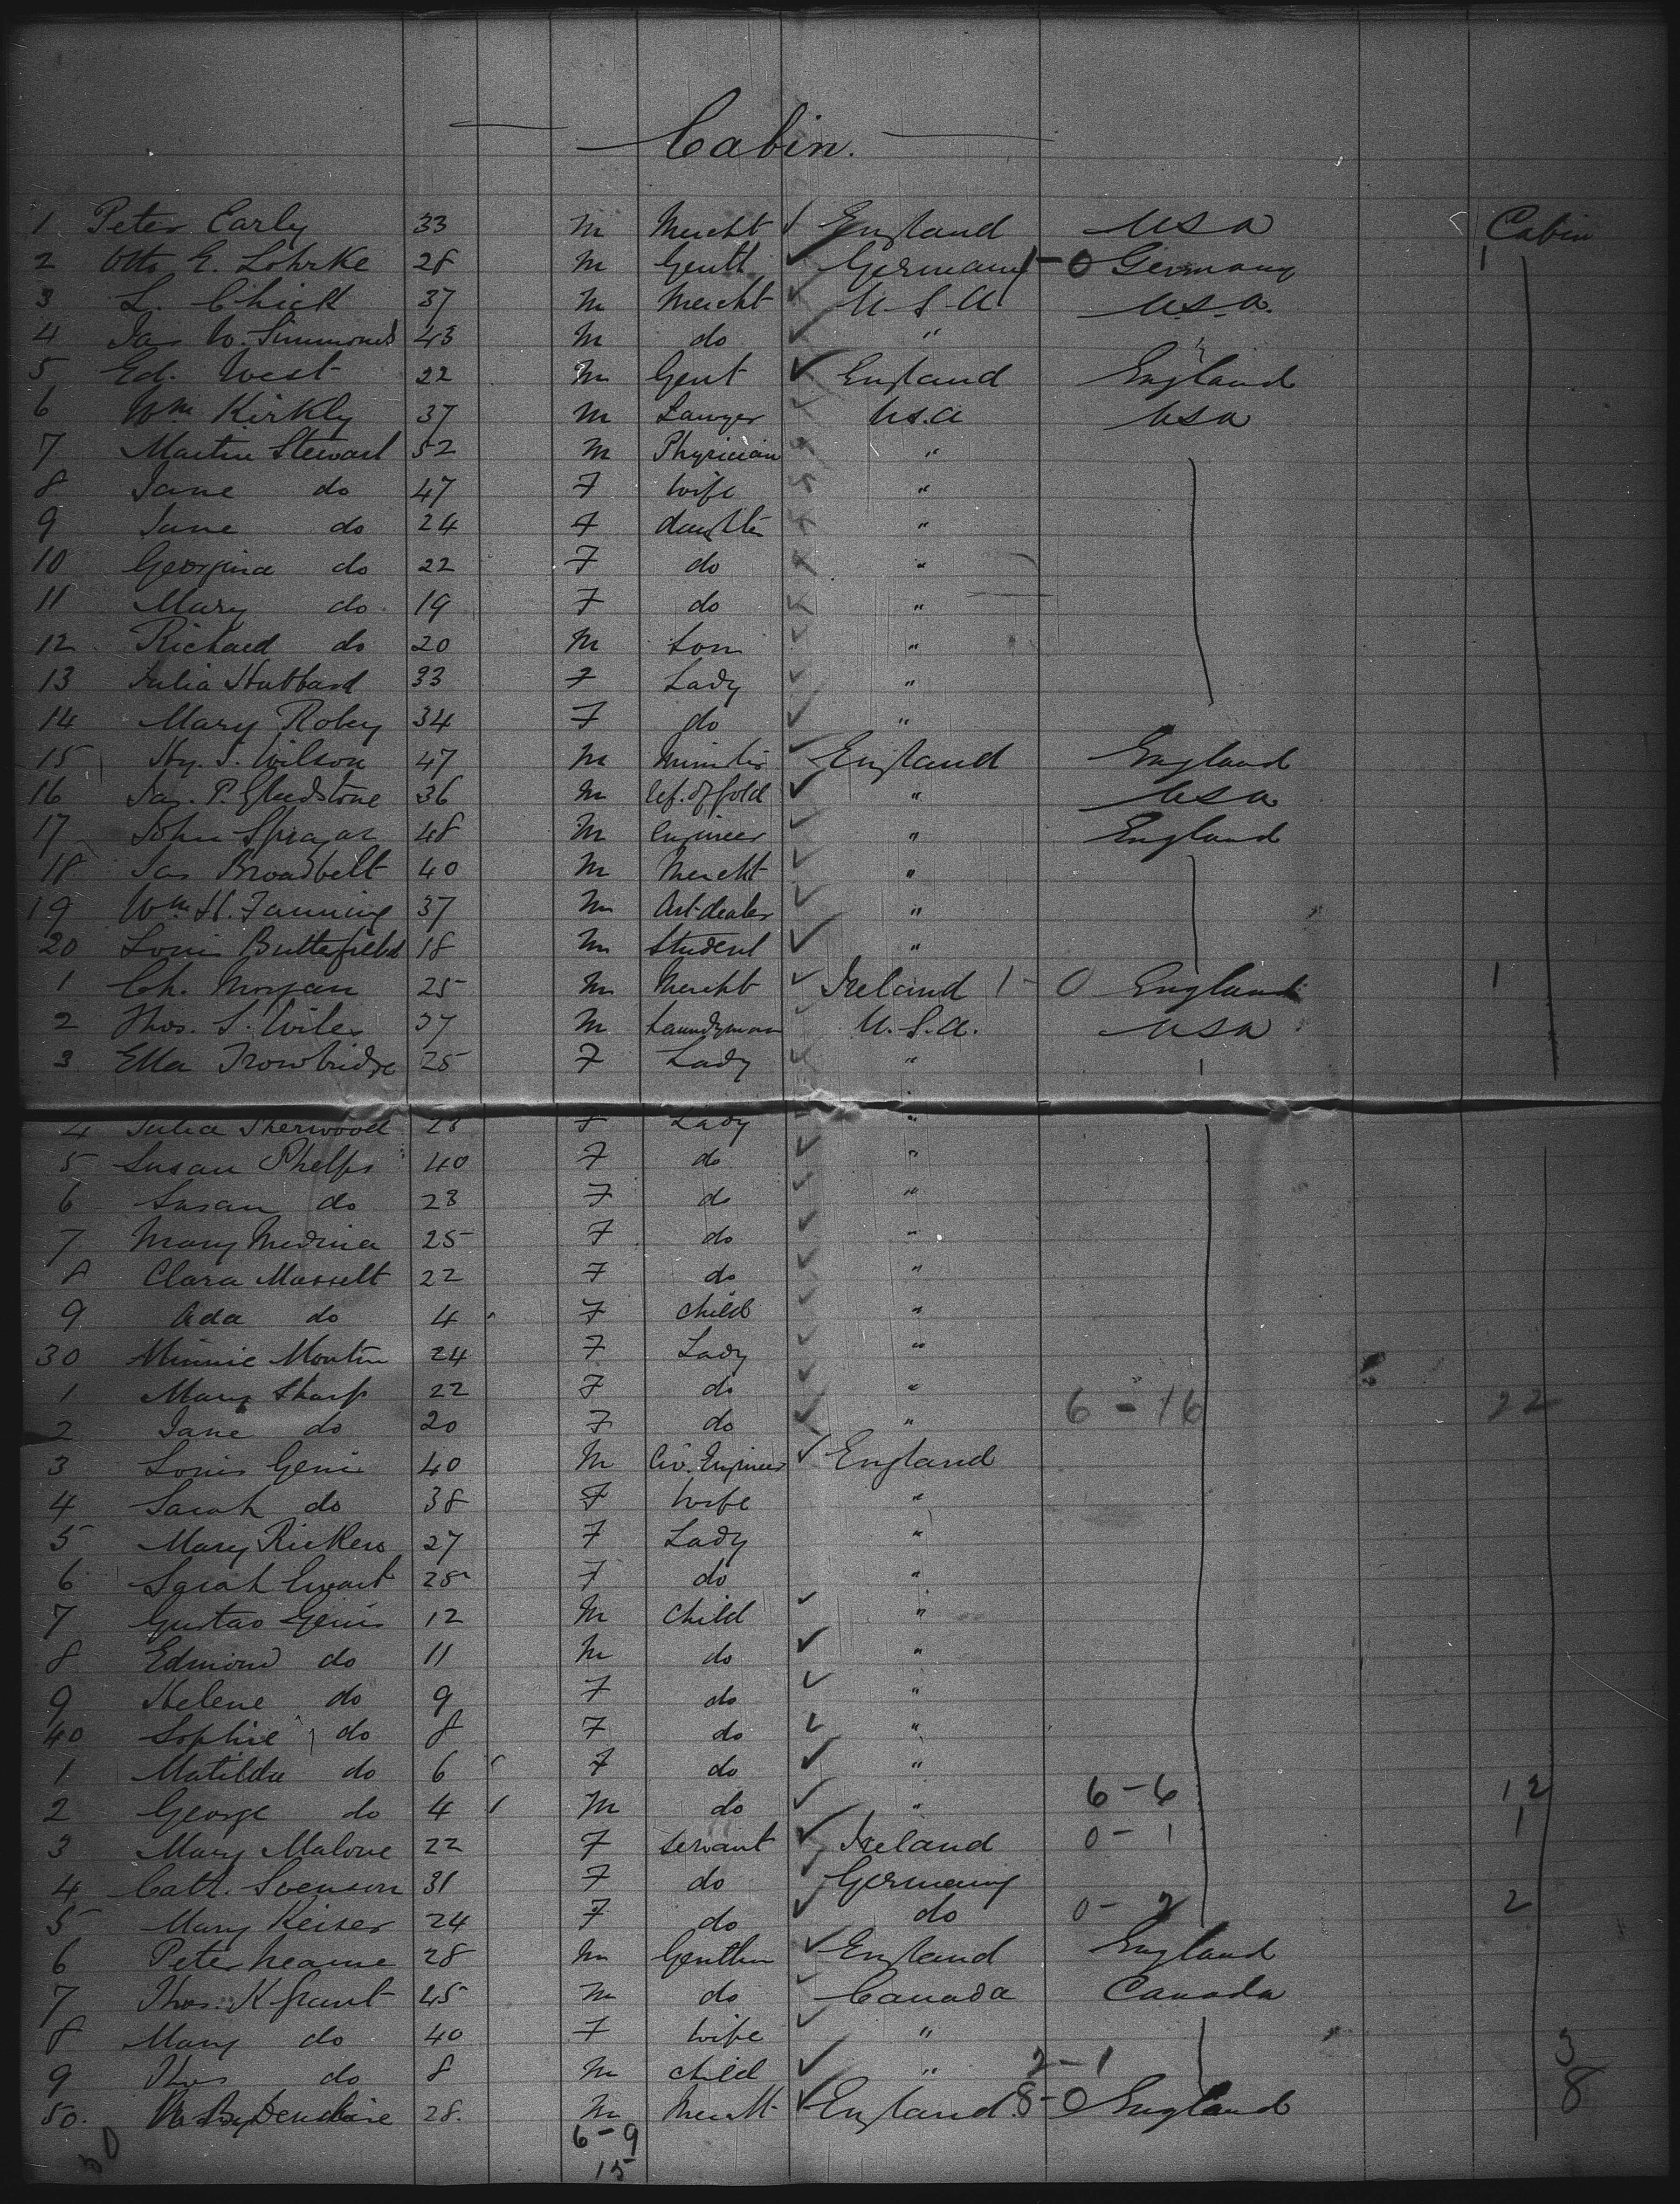 Cabin.
1 Peter Early 33 M Mercht England USA Cabin
2 Otto E. Lohrke 28 M Gentl Germany 1-0 Germany 1
3 L. Chick 37 M Mercht U.S.A U.S.A.
4 Jas W. Simmonds 43 M do " "
5 Ed. West 22 M Gent England England
6 Wm Kirkly 37 M Lawyer U.S.A USA
7 Martin Stewart 52 M Physician "
8 Jane do 47 F wife "
9 Jane do 24 F daughter "
10 Georgina do 22 F do "
11 Mary do 19 F do "
12 Richard do 20 M Son "
13 Julia Hubbard 33 F Lady "
14 Mary Robey 34 F do "
15 Hy. J. Wilson 47 M Minister England England
16 Jas. P. Gladstone 36 M " USA
17 John 48 M Engineer " England
18 Jas Broadbelt 40 M Mercht "
19 Wm H. Fanning 37 M Art-dealer "
20 Louis Butterfield 18 M Student "
1 Ch. Morgan 25 M Mercht Ireland 1-0 England 1
2 Thos. S. Wiles 37 M Laundryman U.S.A. USA
3 Ella Trowbridge 25 F Lady "
4 Julia Sherwood 28 F Lady "
5 Susan Phelps 40 F do "
6 Susan do 23 F do "
7 Mary Medina 25 F do "
8 Clara Masselt 22 F do "
9 Ada do 4 F child "
30 Minnie 24 F Lady "
1 Mary Sharp 22 F do "
2 Jane do 20 F do " 6-16 22
3 Louis Genis 40 M Civ. Engineer England
4 Sarah do 38 F wife "
5 Mary Rickers 27 F Lady "
6 Sarah Ewart 25 F do "
7 Gustav Genis 12 M child "
8 Edmond do 11 M do "
9 Helene do 9 F do "
40 Sophie do 8 F do "
1 Matilda do 6 F do "
2 George do 4 M do " 6-6 12
3 Mary Malone 22 F servant Ireland 0-1 1
4 Cath. Svenson 31 F do Germany
5 Mary Keiser 24 F do do 0-2 2
6 Peter 28 M Gentln England England
7 Thos. K Grant 45 M do Canada Canada
8 Mary do 40 F wife "
9 Thos do 8 M child " 2-1 3
50. 28. M Mercht England 8-0 England 8
6-9
15
50